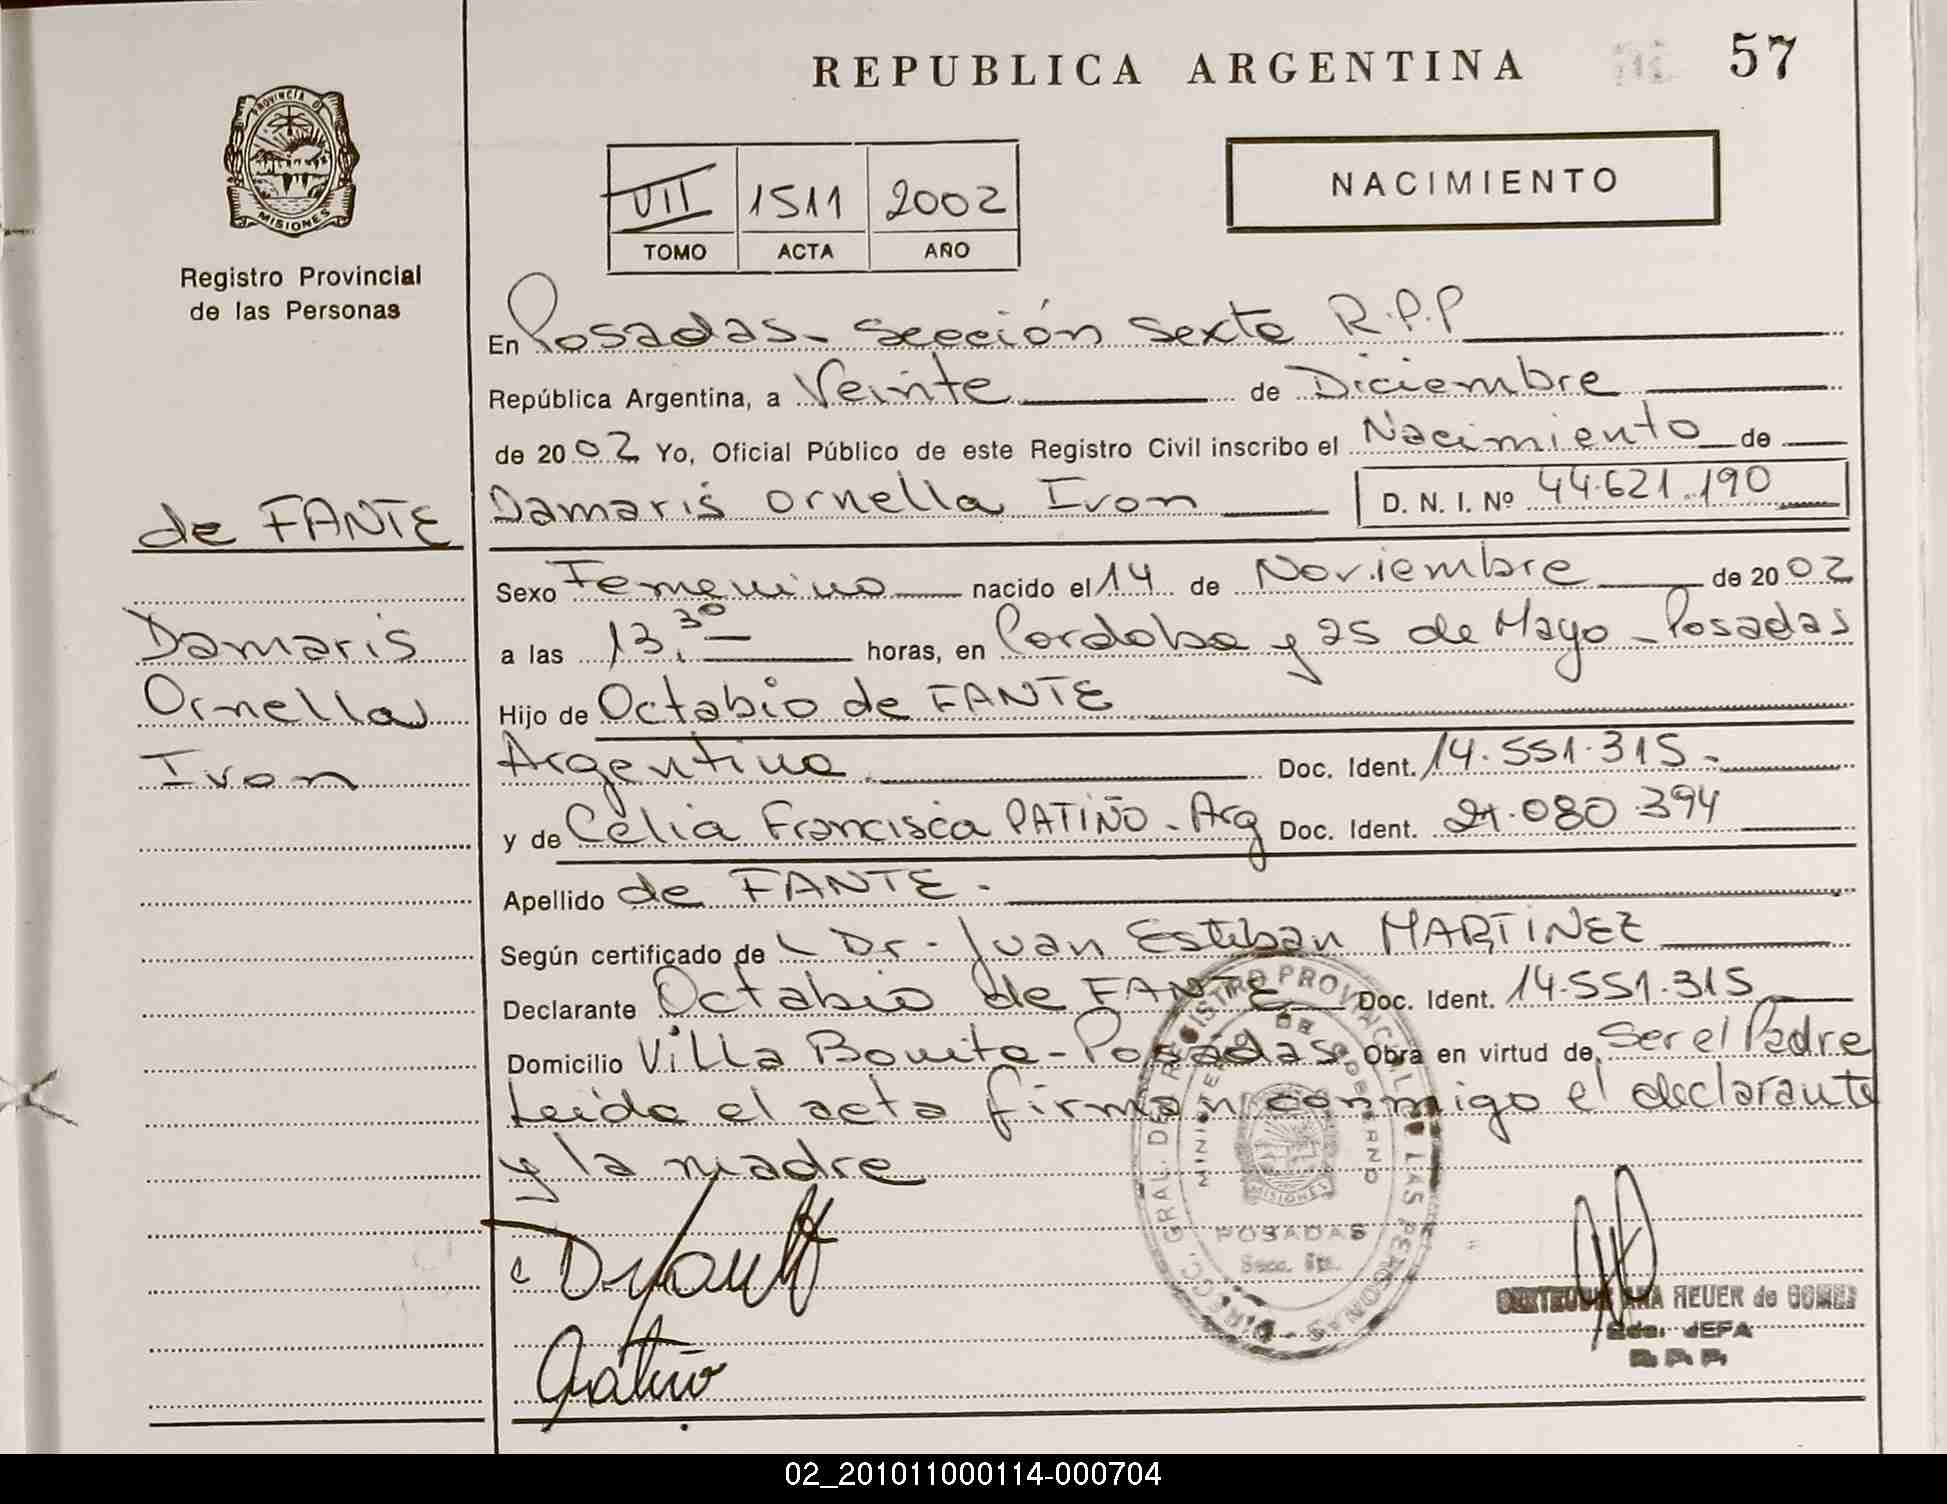 REPUBLICA ARGENTINA
57
PROVINCIA DE
MISIONES
Registro Provincial
de las Personas
VII 1511 2002
TOMO ACTA AÑO
NACIMIENTO
En Posadas - sección sexta R.P.P
República Argentina, a Veinte de Diciembre
de 2002 Yo, Oficial Público de este Registro Civil inscribo el Nacimiento de
Damaris Ornella Ivon D. N. I. Nº 44.621.190
de FANTE
Damaris
Ornella
Ivon
Sexo Femenino nacido el 14 de Noviembre de 2002
a las 13,30 horas, en Cordoba y 25 de Mayo - Posadas
Hijo de Octabio de FANTE
Argentino Doc. Ident. 14.551.315.-
y de Celia Francisca PATIÑO - Arg Doc. Ident. 21.080.394
Apellido de FANTE.
Según certificado de Dr. Juan Esteban MARTINEZ
Declarante Octabio de FANTE Doc. Ident. 14.551.315
Domicilio Villa Bonita - Posadas Obra en virtud de Ser el Padre
Leida el acta firman conmigo el declarante
y la madre
DIRECC. GRAL. DE REGISTRO PROVINCIAL DE LAS PERSONAS
MINISTERIO DE GOBIERNO
MISIONES
POSADAS
Secc. 6ta.
Patiño
ANA REUER de GOMEZ
2da. JEFA
R.P.P.
02_201011000114-000704